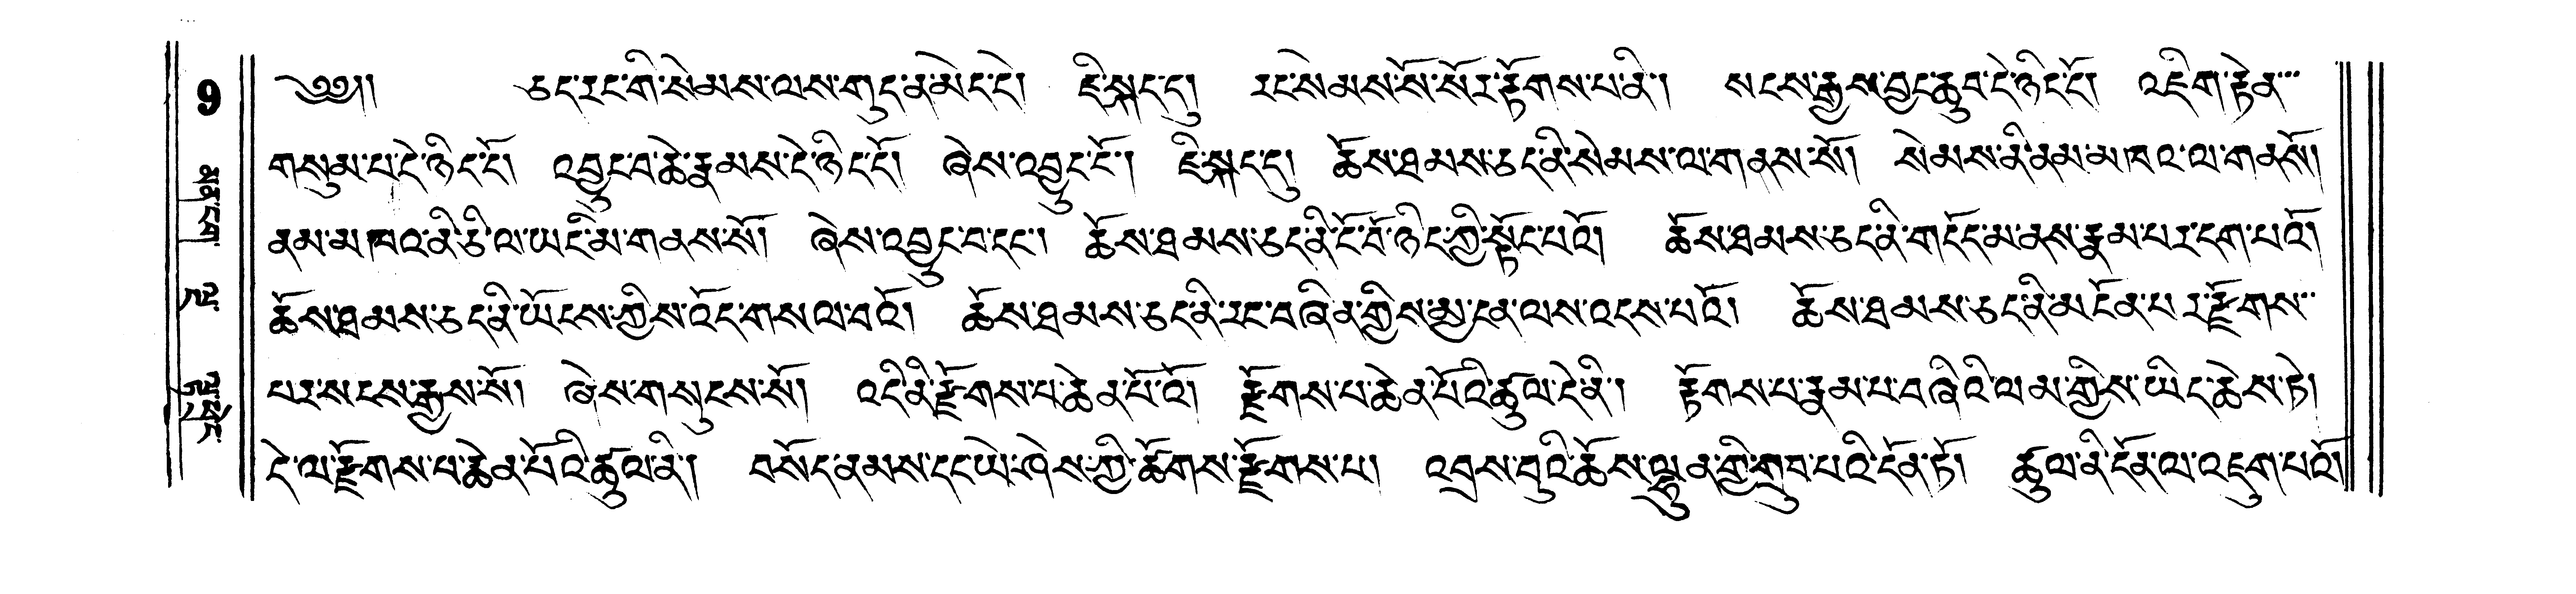 ༄༅།། ཅད་རང་གི་སེམས་ལས་གུད་ན་མེད་དེ། ཇི་སྐད་དུ། རང་སེམས་སོ་སོར་རྟོགས་པ་ནི། སངས་རྒྱས་བྱང་ཆུབ་དེ་ཉིད་དོ། འཇིག་རྟེན་
གསུམ་པ་དེ་ཉིད་དོ། འབྱུང་བ་ཆེ་རྣམས་དེ་ཉིད་དོ། ཞེས་འབྱུང་ངོ་། ཇི་སྐད་དུ། ཆོས་ཐམས་ཅད་ནི་སེམས་ལ་གནས་སོ། སེམས་ནི་ནམ་མཁའ་ལ་གནསོ།
ནམ་མཁའ་ནི་ཅི་ལ་ཡང་མི་གནས་སོ། ཞེས་འབྱུང་བ་དང་། ཆོས་ཐམས་ཅད་ནི་ངོ་བོ་ཉིད་ཀྱི་སྟོང་པའོ། ཆོས་ཐམས་ཅད་ནི་གདོད་མ་ནས་རྣམ་པར་དག་པའོ།
ཆོས་ཐམས་ཅད་ནི་ཡོངས་ཀྱིས་འོད་གསལ་བའོ། ཆོས་ཐམས་ཅད་ནི་རང་བཞིན་གྱིས་མྱ་ངན་ལས་འདས་པའོ། ཆོས་ཐམས་ཅད་ནི་མངོན་པར་རྫོགས་
པར་སངས་རྒྱས་སོ། ཞེས་གསུངས་སོ། འདི་ནི་རྫོགས་པ་ཆེན་པོ་འོ། རྫོགས་པ་ཆེན་པོའི་ཚུལ་དེ་ནི། རྟོགས་པ་རྣམ་པ་བཞིའི་ལམ་གྱིས་ཡིད་ཆེས་ཏེ།
དེ་ལ་རྫོགས་པ་ཆེན་པོའི་ཚུལ་ནི། བསོད་ནམས་དང་ཡེ་ཤེས་ཀྱི་ཚོགས་རྫོགས་པ། འབྲས་བུའི་ཆོས་ལྷུན་གྱི་གྲུབ་པའི་དོན་ཏོ། ཚུལ་ནི་དོན་ལ་འཇུག་པའོ།